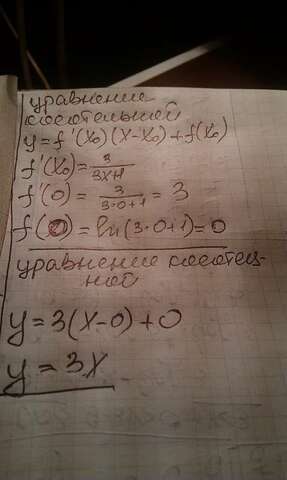 уравнение
касательной
y = f'(x₀)(x-x₀)+f(x₀)
f'(x₀) = 3/(3x+1)
f'(0) = 3/(3·0+1) = 3
f(0) = ln(3·0+1) = 0
уравнение касатель-
ной
y = 3(x-0)+0
y = 3x